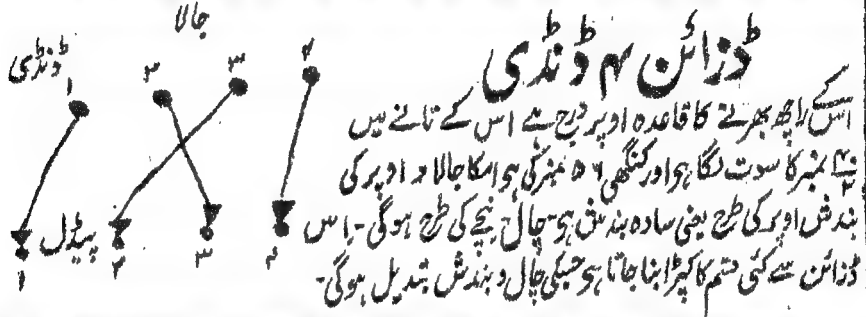 ڈزائن ۴ ڈنڈی
اس کے راچھ بھرنے کا قاعدہ اوپر درج ہے اس کے تانے میں
نمبر کا سوت لگا ہو اور کنگھی ۵۶ نمبر کی ہو اسکا جالا و اوپر کی
بندش اوپر کی طرح یعنی سادہ بندش ہو۔ چال نیچے کی طرح ہوگی۔ اس
ڈزائن سے کئی قسم کا کپڑا بنا جاتا ہو جسکی چال و بندش تبدیل ہوگی۔
جالا
ڈنڈی ۱ ۲ ۳ ۴
پیڈل
۱ ۲ ۳ ۴